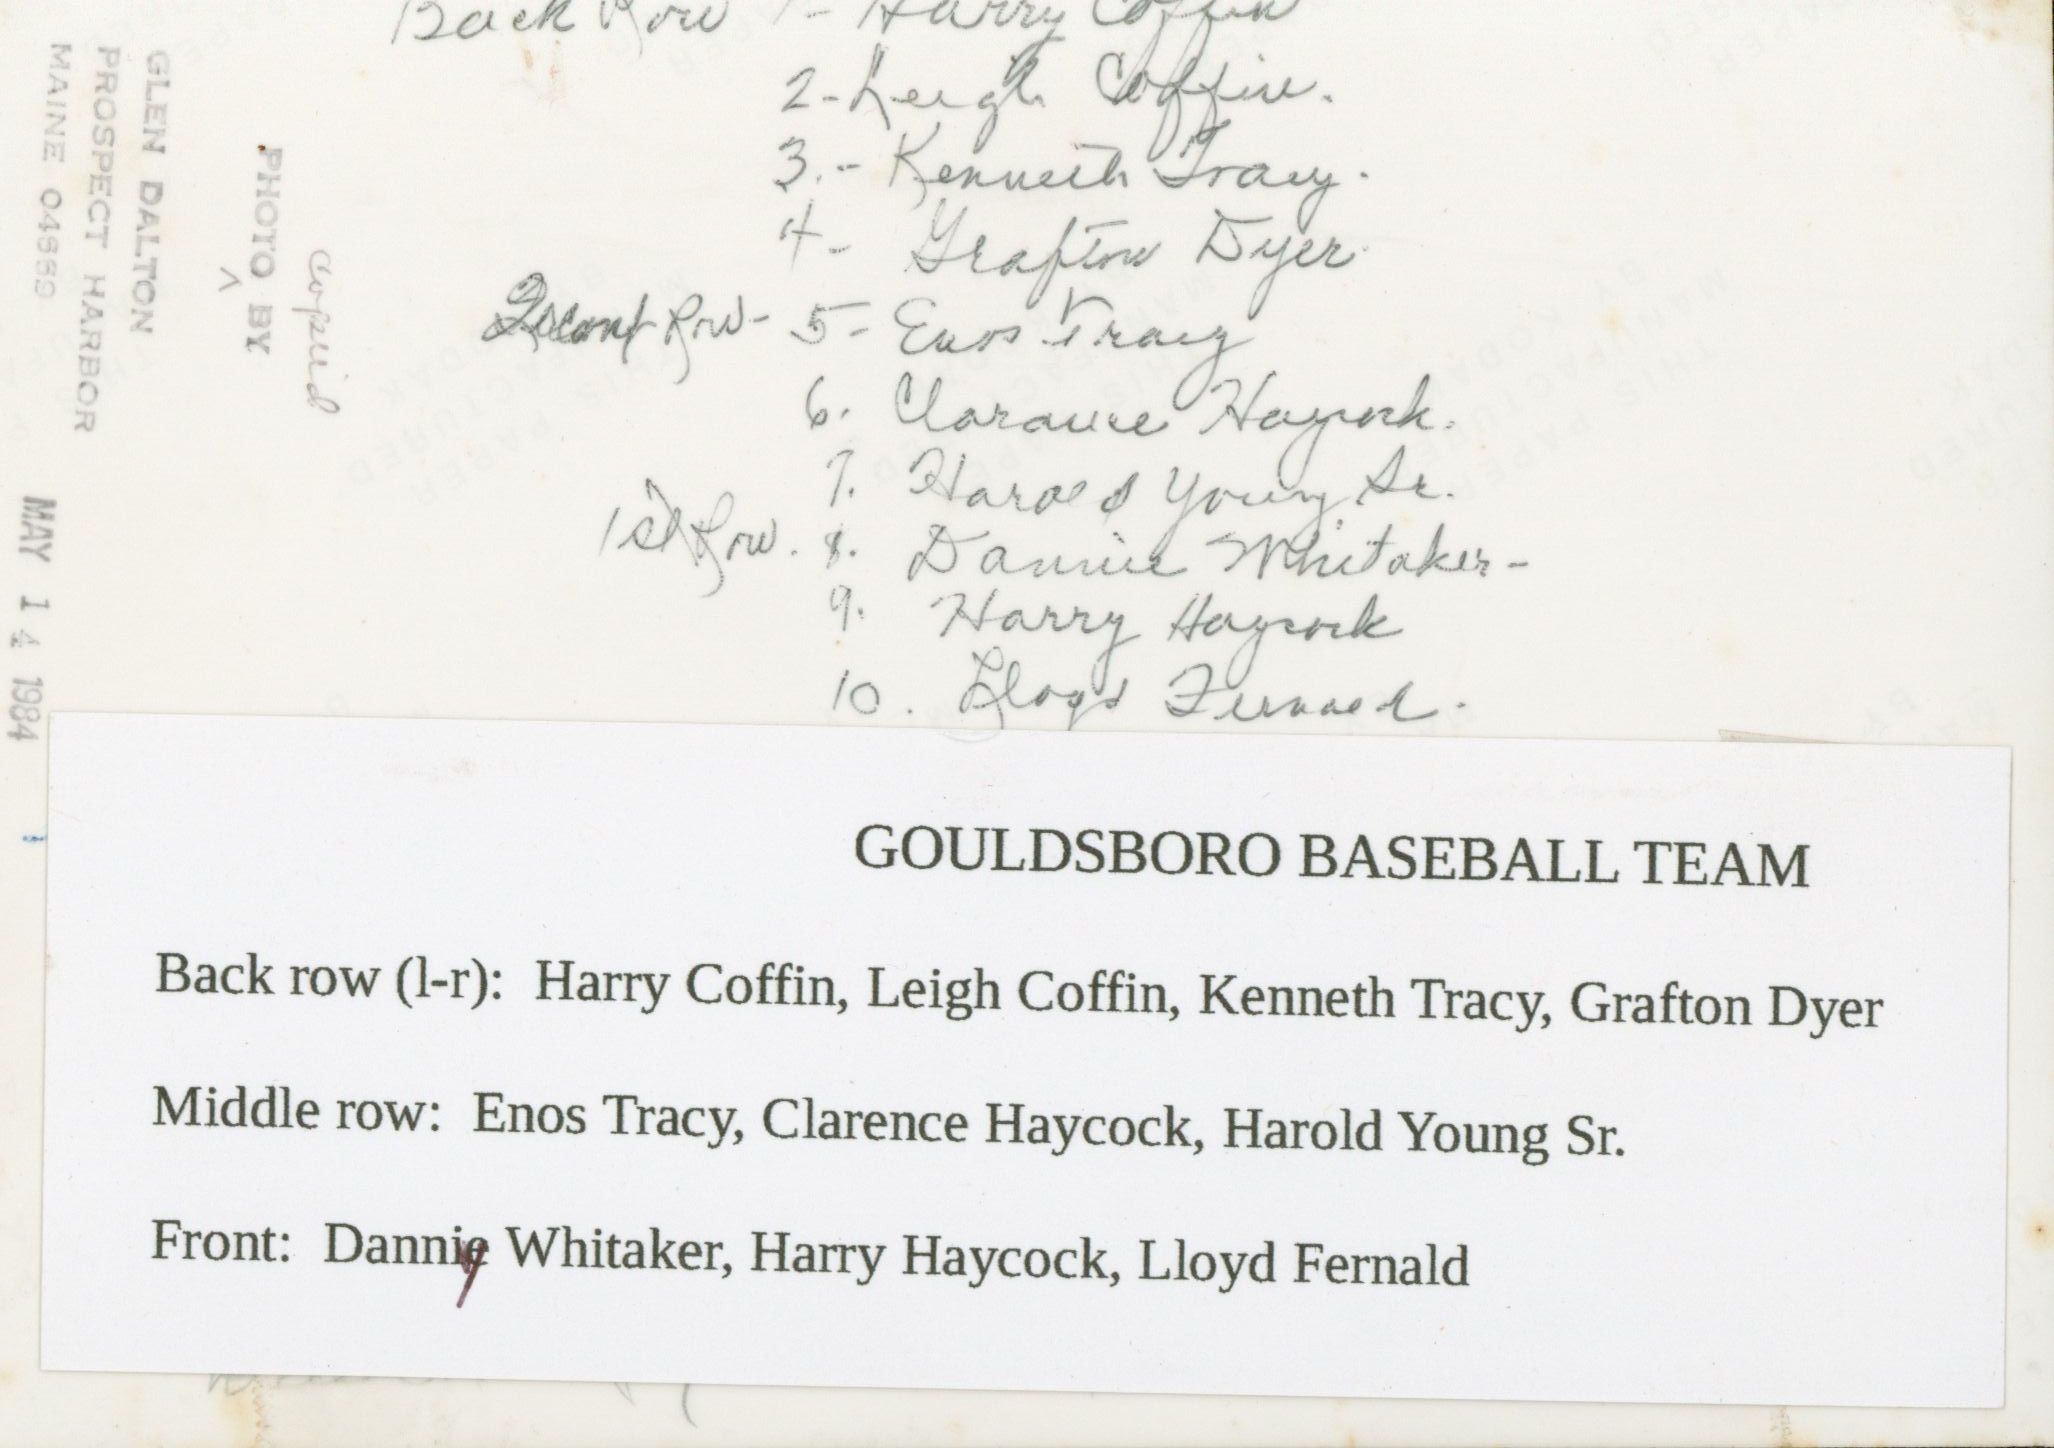 Back Row 1- Harry Coffin
2- Leigh Coffin.
3.- Kenneth Tracy.
4- Grafton Dyer.
Second Row- 5- Enos Tracy
6. Clarance Haycock.
7. Harold Young Sr.
1st Row. 8. Dannie Whitaker-
9. Harry Haycock
10. Lloyd Fernald.
copied
PHOTO ^ BY
GLEN DALTON
PROSPECT HARBOR
MAINE 04669
MAY 14 1984
GOULDSBORO BASEBALL TEAM
Back row (l-r): Harry Coffin, Leigh Coffin, Kenneth Tracy, Grafton Dyer
Middle row: Enos Tracy, Clarence Haycock, Harold Young Sr.
Front: Danny Whitaker, Harry Haycock, Lloyd Fernald